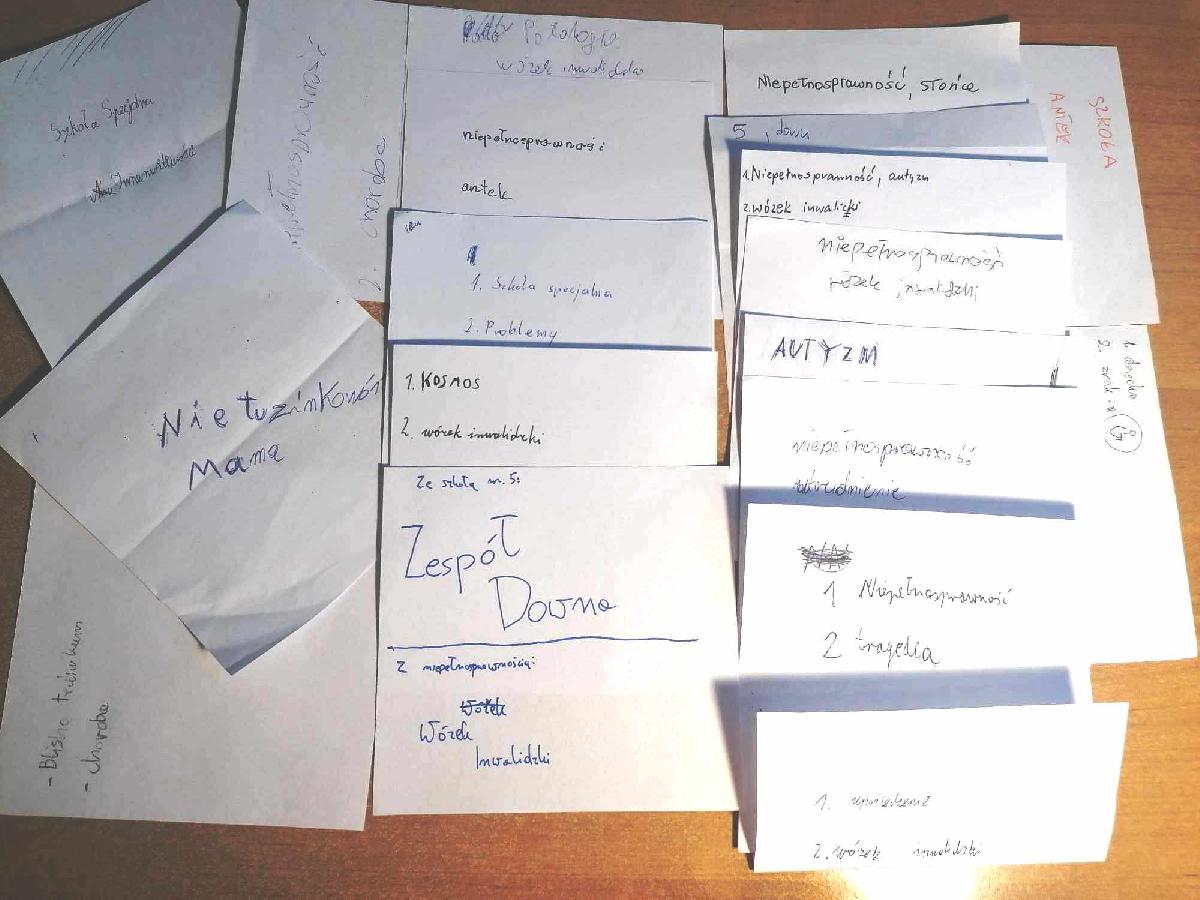 Szkoła Specjalna
Niepełnosprawność
2. choroba
Patologia
wózek inwalidzki
niepełnosprawność
antek
Niepełnosprawność, słońce
SZKOŁA
ANTEK
5, down
1. Niepełnosprawność, autyzm
2. wózek inwalicki
niepełnosprawność
wózek
1. Szkoła specjalna
2. Problemy
AUTYZM
1. dziecko
2. znak
1. KOSMOS
2. wózek inwalidzki
Nietuzinkowość
Mama
niepełnosprawność
utrudnienie
Ze szkołą nr. 5:
Zespół
Downa
Z niepełnosprawnością:
Wózek
Wózek
Inwalidzki
1 Niepełnosprawność
2 tragedia
- Blisko
- choroba
1.
2. wózek inwalidzki